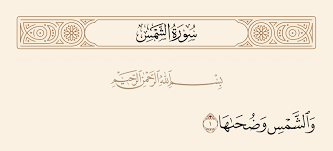 سُورَةُ الشَّمْسِ
بِسْمِ اللَّهِ الرَّحْمَٰنِ الرَّحِيمِ
وَالشَّمْسِ وَضُحَىٰهَا ١